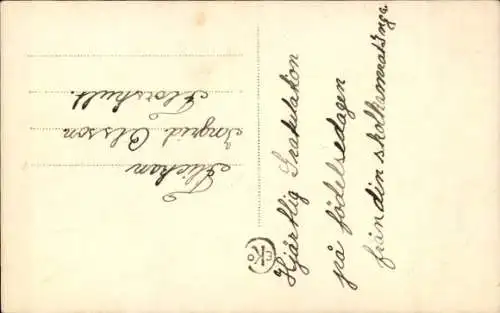 Hjärtlig Gratulation
på födelsedagen
från din skolkamrat Inga.
Flickan
Ingrid Olsson
Florshult.